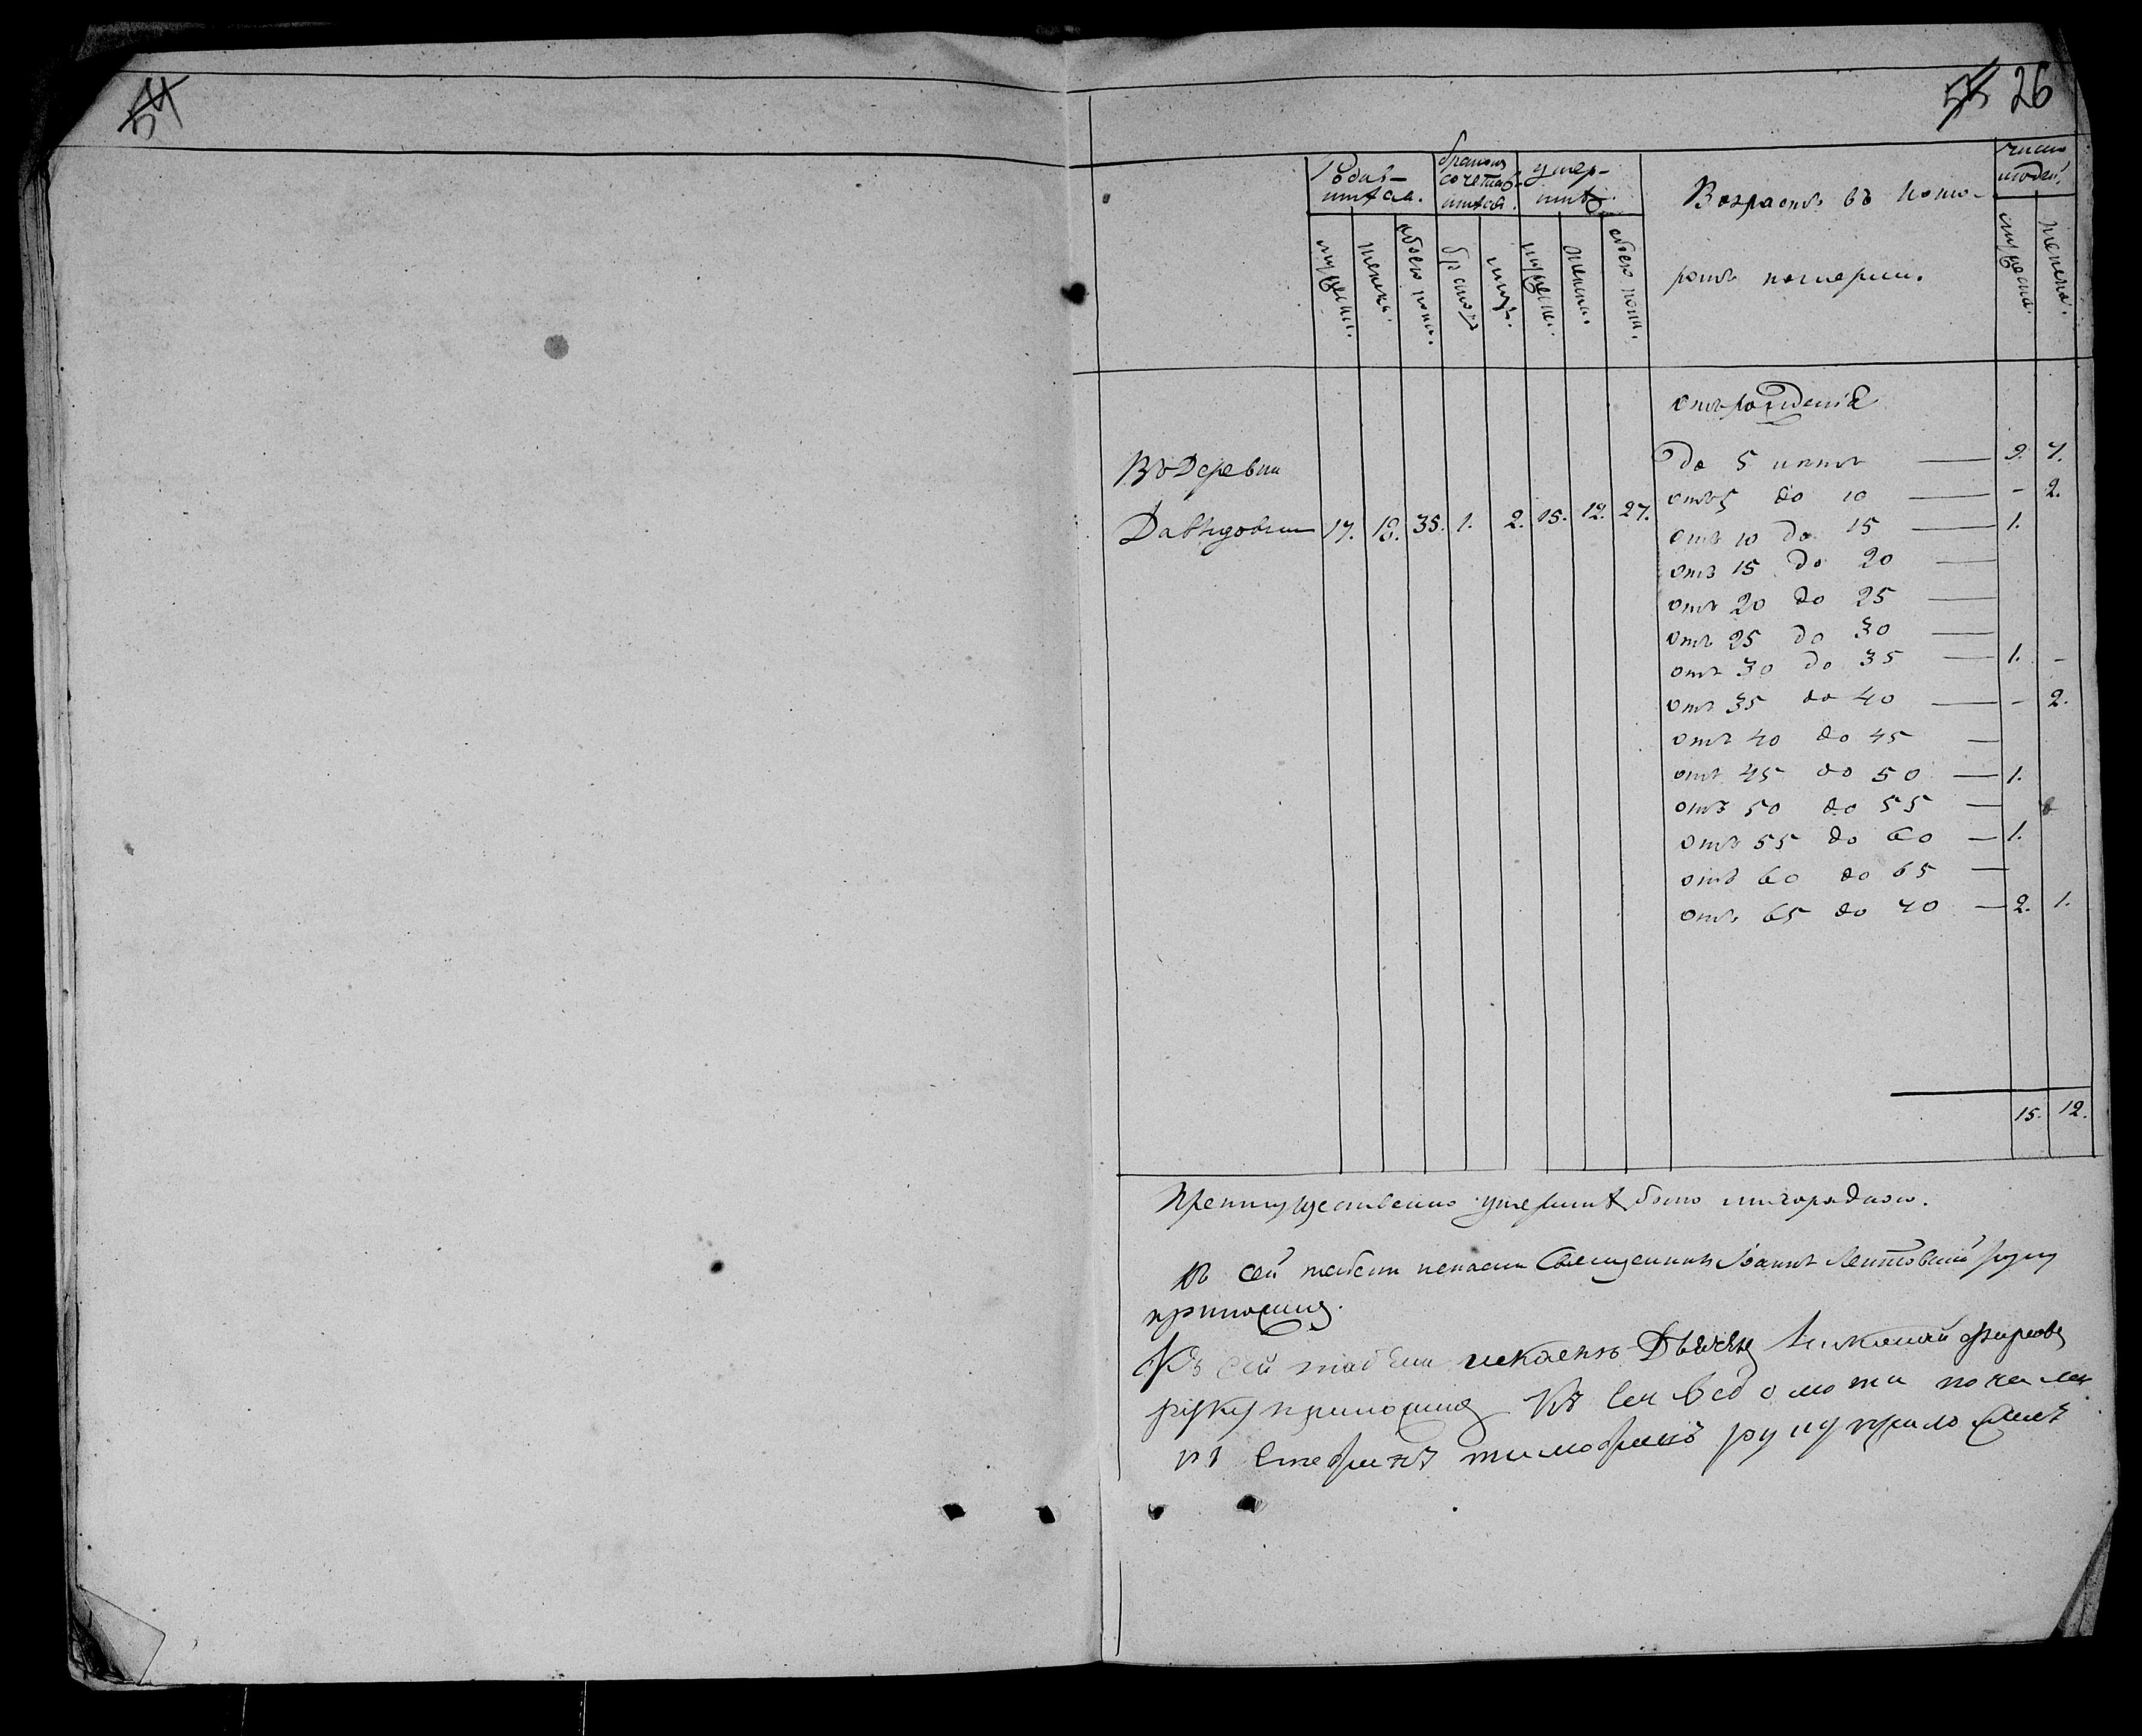 54
55 26
Родив-
шихся.
бракомъ
сочетав-
шихся.
умер-
шихъ.
Возрастъ въ кото-
ромъ померли.
число
людей.
мужеск.
женск.
обоего пола.
браковъ
лицъ.
мужеск.
женск.
обоего пола.
мужеска.
женска.
отъ рожденія
Въ Деревни
до 5 летъ — 9. 7.
отъ 5 до 10 — - 2.
Давыдовки 17. 18. 35. 1. 2. 15. 12. 27.
отъ 10 до 15 — 1.
отъ 15 до 20 —
отъ 20 до 25 —
отъ 25 до 30 —
отъ 30 до 35 — 1. -
отъ 35 до 40 — - 2.
отъ 40 до 45 —
отъ 45 до 50 — 1.
отъ 50 до 55 —
отъ 55 до 60 — 1.
отъ 60 до 65 —
отъ 65 до 70 — 2. 1.
15. 12.
Преимущественно умерших было
Къ сей табели Священникъ Іоаннъ руку
приложилъ.
Къ сей табели
руку приложилъ Къ сей ведомости
руку приложилъ